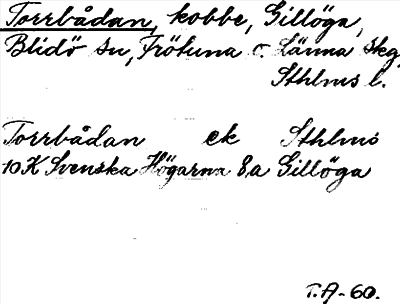 Torrbådan, kobbe, Gillöga,
Blidö sn, Frötuna o. Länna skg,
Sthlms l.
Torrbådan ek Sthlms
10K Svenska Högarna 8,a Gillöga
T.A-60.